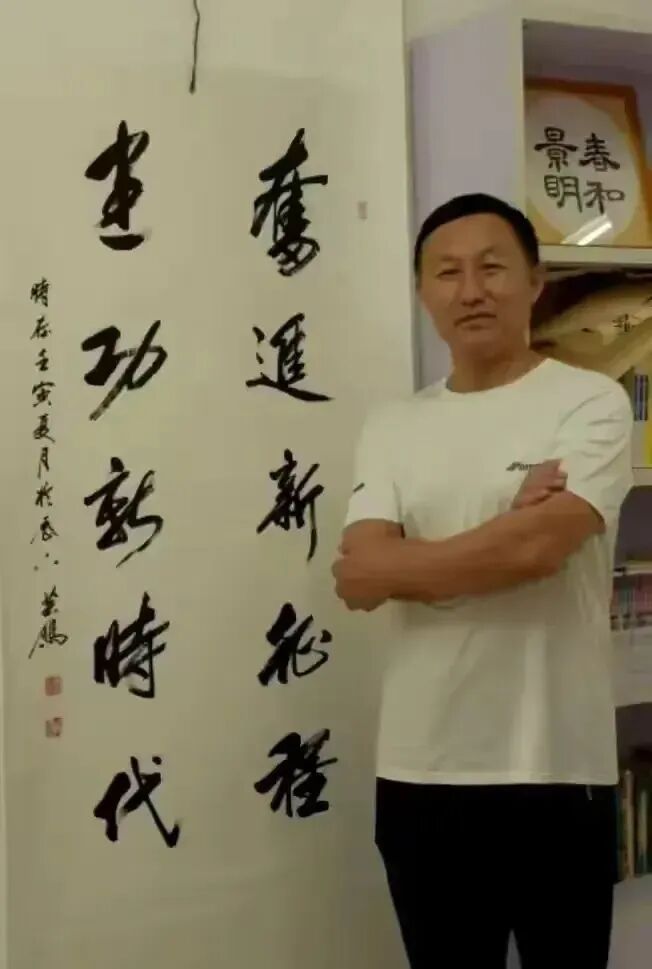 奮進新征程
建功新時代
時在壬寅夏月於
春和
景明